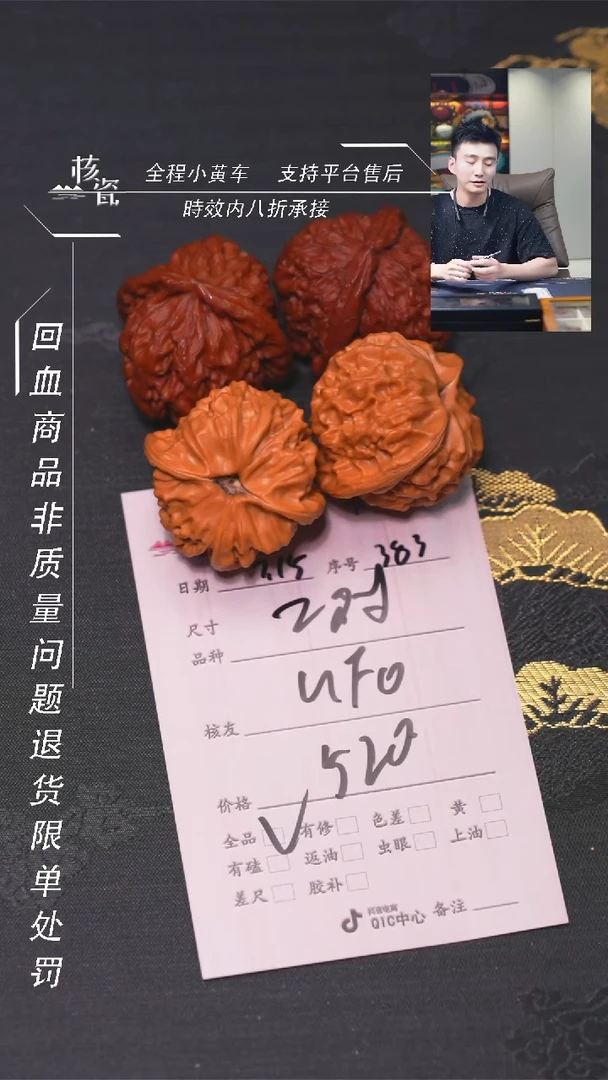 核瓷
全程小黄车 支持平台售后
時效内八折承接
回血商品非质量问题退货限单处罚
日期 7.15 序号 383
尺寸 2对
品种
UFO
核友
520
价格
全品 有修 色差 黄
有磕 返油 虫眼 上油
差尺 胶补
抖音电商
QIC中心 备注